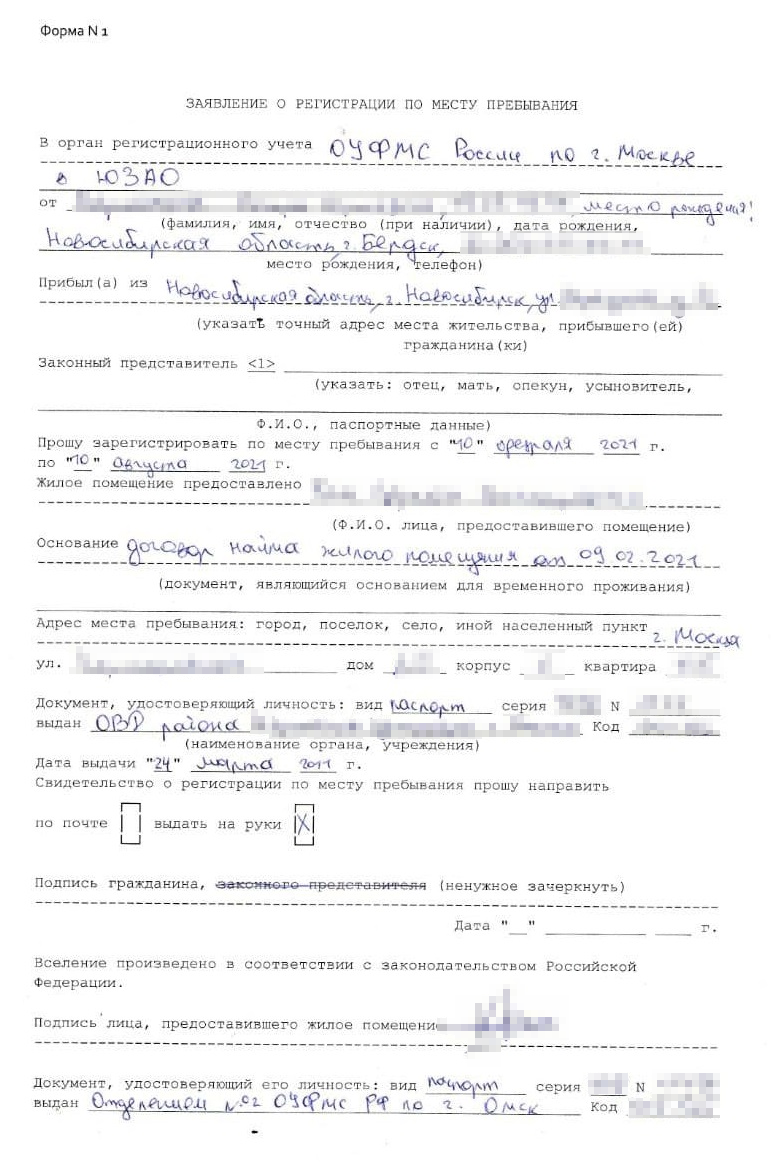 Форма N 1
ЗАЯВЛЕНИЕ О РЕГИСТРАЦИИ ПО МЕСТУ ПРЕБЫВАНИЯ
В орган регистрационного учета ОУФМС России по г. Москве
в ЮЗАО
от место рождения:
(фамилия, имя, отчество (при наличии), дата рождения,
Новосибирская область, г. Бердск,
место рождения, телефон)
Прибыл(а) из Новосибирская область, г. Новосибирск, ул.
(указать точный адрес места жительства, прибывшего(ей)
гражданина(ки)
Законный представитель <1>
(указать: отец, мать, опекун, усыновитель,
Ф.И.О., паспортные данные)
Прошу зарегистрировать по месту пребывания с "10" февраля 2021 г.
по "10" августа 2021 г.
Жилое помещение предоставлено
(Ф.И.О. лица, предоставившего помещение)
Основание договор найма жилого помещения от 09.02.2021
(документ, являющийся основанием для временного проживания)
Адрес места пребывания: город, поселок, село, иной населенный пункт г. Москва
ул. дом корпус квартира
Документ, удостоверяющий личность: вид паспорт серия N
выдан ОВД района Код
(наименование органа, учреждения)
Дата выдачи "24" марта 2011 г.
Свидетельство о регистрации по месту пребывания прошу направить
по почте выдать на руки X
Подпись гражданина, законного представителя (ненужное зачеркнуть)
Дата "__" ________ ___ г.
Вселение произведено в соответствии с законодательством Российской
Федерации.
Подпись лица, предоставившего жилое помещение
Документ, удостоверяющий его личность: вид паспорт серия N
выдан Отделением №2 ОУФМС РФ по г. Омск Код